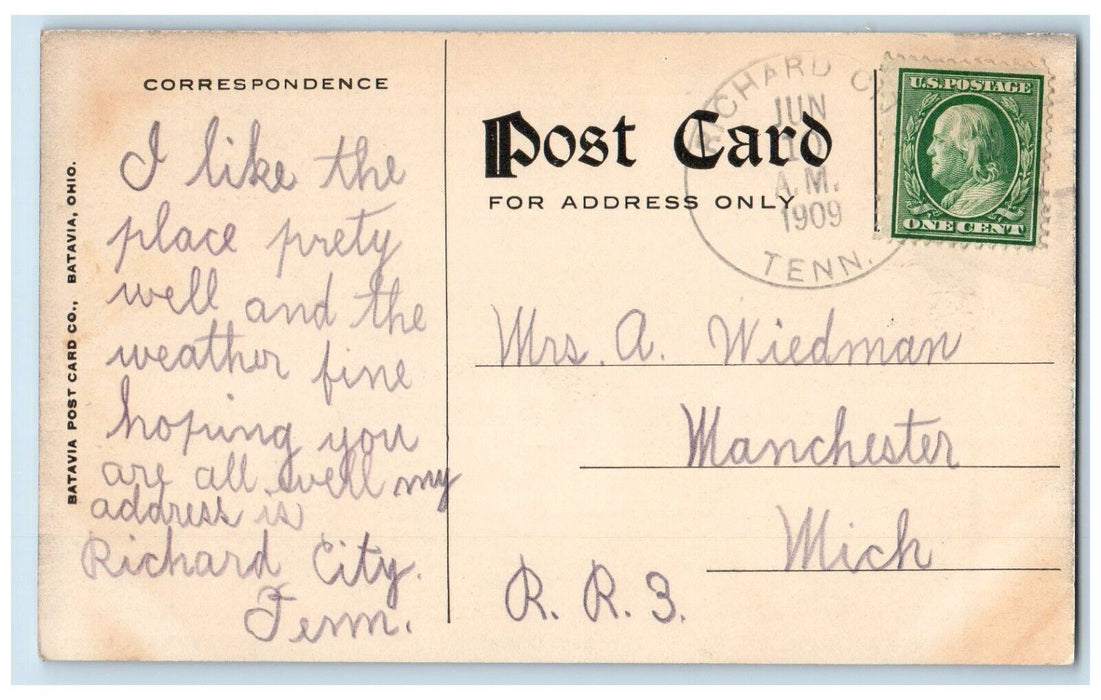 CORRESPONDENCE
I like the
place prety
well and the
weather fine
hoping you
are all well my
address is
Richard City.
Tenn.
BATAVIA POST CARD CO., BATAVIA, OHIO.
Post Card
FOR ADDRESS ONLY
RICHARD
JUN
A.M.
1909
TENN.
U.S. POSTAGE
ONE CENT
Mrs. A. Wiedman
Manchester
Mich
R. R. 3.